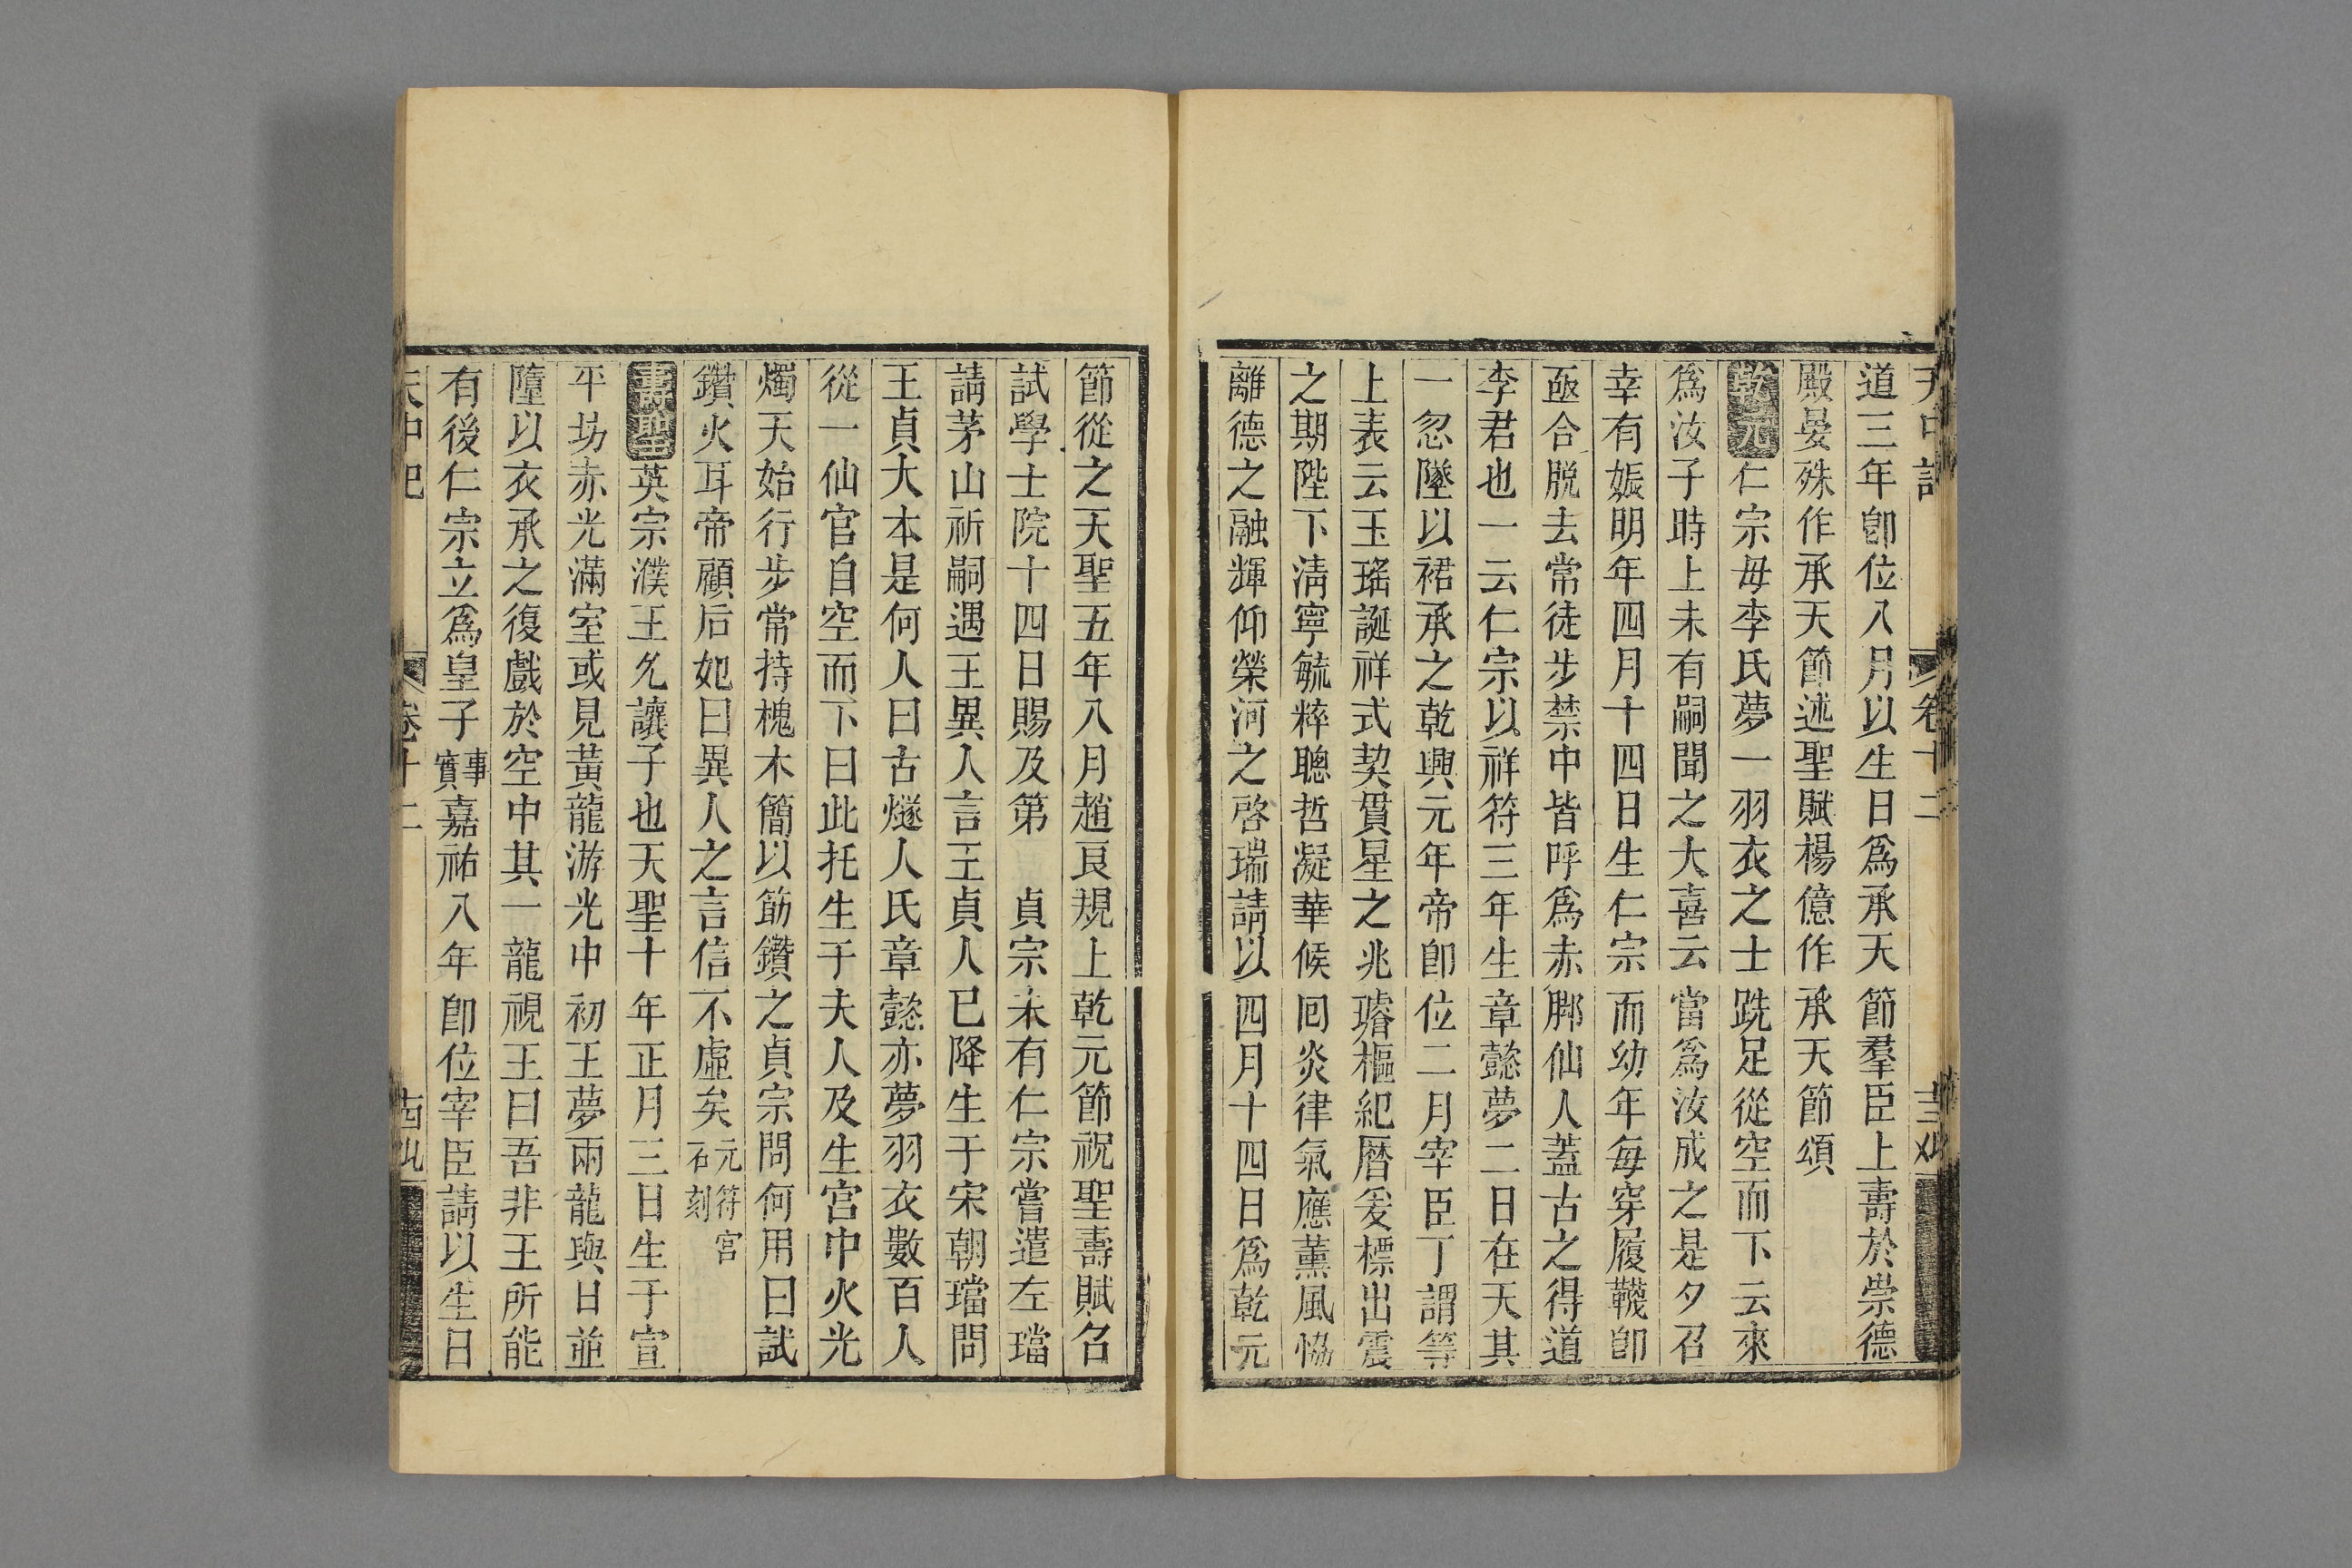 天中記 卷十二
道三年卽位八月以生日爲承天節羣臣上壽於崇德
殿晏殊作承天節述聖賦楊億作承天節頌
乾元仁宗母李氏夢一羽衣之士跣足從空而下云來
爲汝子時上未有嗣聞之大喜云當爲汝成之是夕召
幸有娠明年四月十四日生仁宗而幼年每穿履韈卽
亟令脫去常徒步禁中皆呼爲赤腳仙人蓋古之得道
李君也一云仁宗以祥符三年生章懿夢二日在天其
一忽墜以裙承之乾興元年帝卽位二月宰臣丁謂等
上表云玉瑤誕祥式契貫星之兆璿樞紀曆爰標出震
之期陛下淸寧毓粹聰哲凝華候囘炎律氣應薰風恊
離德之融輝仰榮河之啓瑞請以四月十四日爲乾元
節從之天聖五年八月趙良規上乾元節祝聖壽賦名
試學士院十四日賜及第　貞宗未有仁宗嘗遣左璫
請茅山祈嗣遇王異人言王貞人已降生于宋朝璫問
王貞大本是何人曰古燧人氏章懿亦夢羽衣數百人
從一仙官自空而下曰此托生于夫人及生宮中火光
燭天始行步常持槐木簡以筯鑽之貞宗問何用曰試
鑽火耳帝顧后妃曰異人之言信不虛矣元符宮石刻
壽聖英宗濮王允讓子也天聖十年正月三日生于宣
平坊赤光滿室或見黃龍游光中初王夢兩龍與日並
墮以衣承之復戲於空中其一龍視王曰吾非王所能
有後仁宗立爲皇子事實嘉祐八年卽位宰臣請以生日
天中記 卷十二